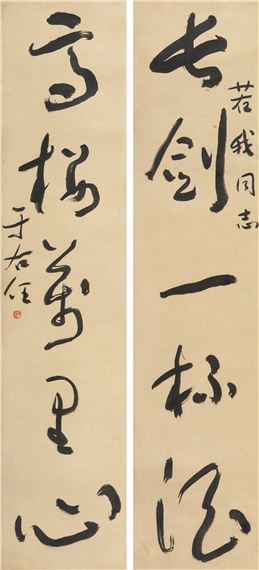 长剑一杯酒
若我同志
高楼万里心
于右任